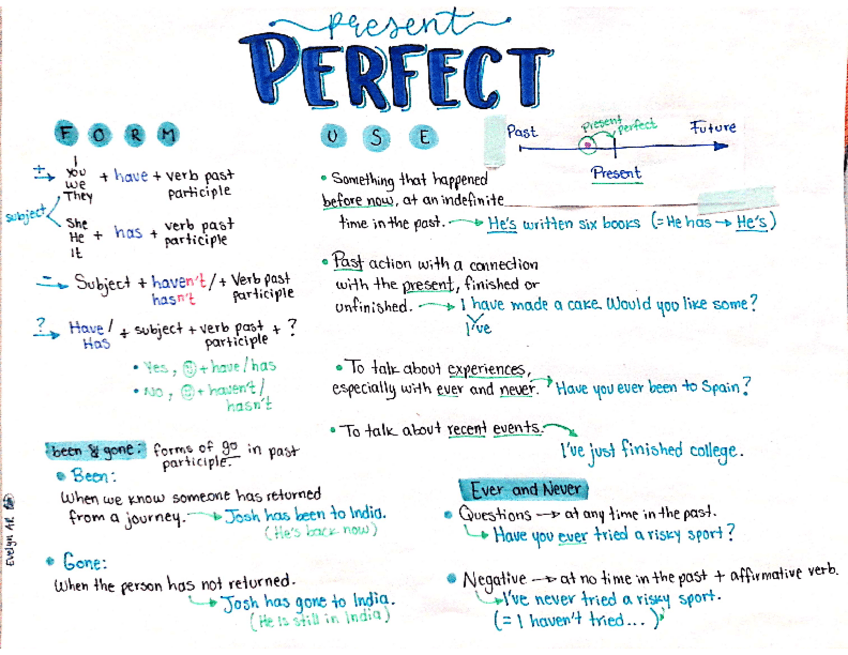 present
PERFECT
FORM
+ I
You
We
They
+ have + verb past
participle
subject
She
He
It
+ has + verb past
participle
- Subject + haven't / + Verb past
hasn't participle
? Have / + subject + verb past + ?
Has participle
• Yes, ☺ + have/has
• No, ☺ + haven't/
hasn't
been & gone: forms of go in past
participle.
• Been:
When we know someone has returned
from a journey. → Josh has been to India.
(He's back now)
• Gone:
When the person has not returned.
→ Josh has gone to India.
(He is still in India)
Evelyn AR
USE
Past
Present
perfect
Future
Present
• Something that happened
before now, at an indefinite
time in the past. → He's written six books (= He has → He's)
• Past action with a connection
with the present, finished or
unfinished. → I have made a cake. Would you like some?
I've
• To talk about experiences,
especially with ever and never. → Have you ever been to Spain?
• To talk about recent events. →
I've just finished college.
Ever and Never
• Questions → at any time in the past.
→ Have you ever tried a risky sport?
• Negative → at no time in the past + affirmative verb.
→ I've never tried a risky sport.
(= I haven't tried...)